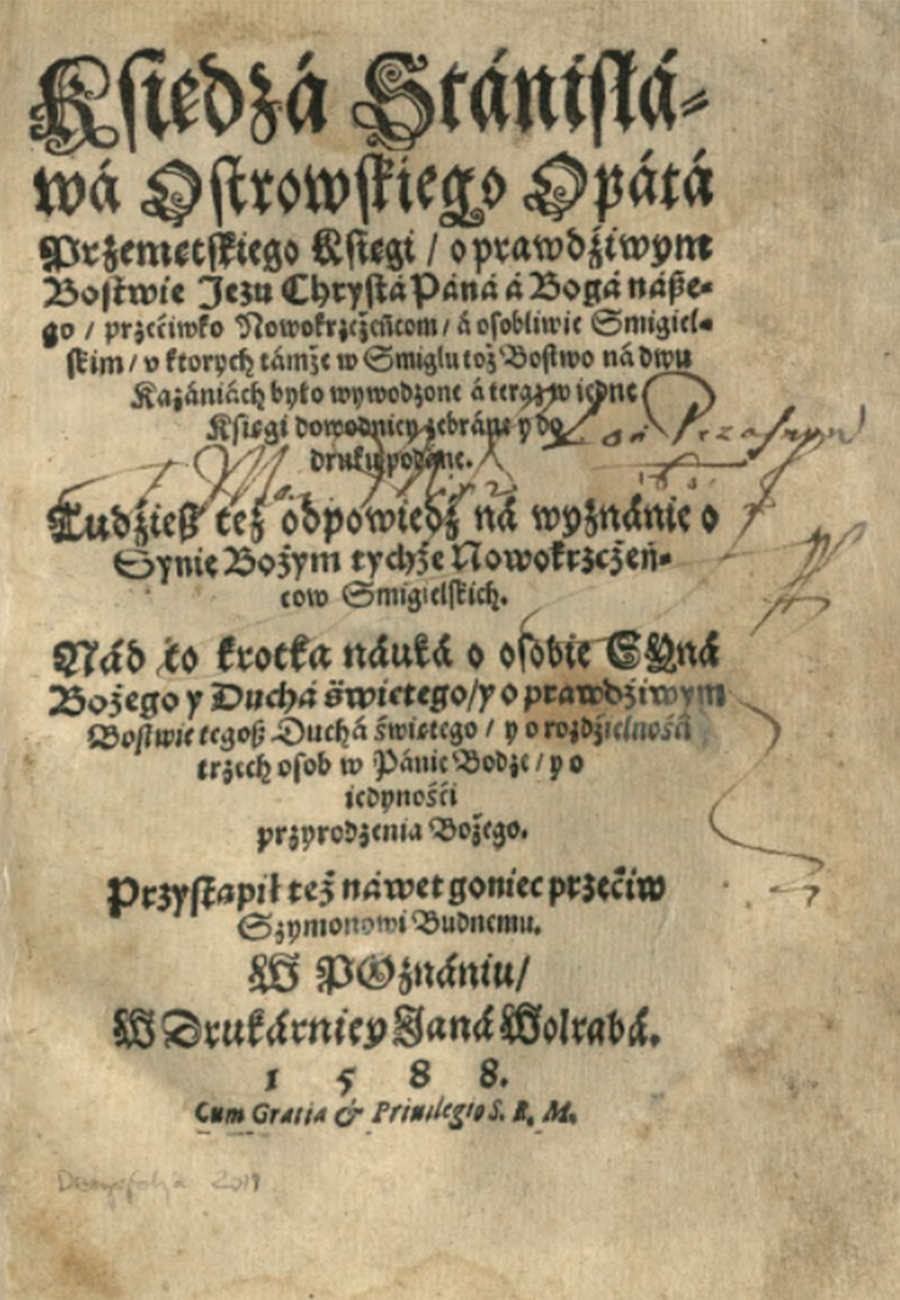 Księdzá Stánisłá-
wá Ostrowskiego Opátá
Przemetskiego Księgi / o prawdźiwym
Bostwie Jezu Chrystá Páná á Bogá náße-
go / przećiwko Nowokrzczeńcom / á osobliwie Smigiel-
skim / v ktorych támże w Smiglu toż Bostwo ná dwu
Kazániách było wywodzone á teraz w iedne
Księgi dowodniey zebráne y do
druku podáne.
Tudźieß też odpowiedź ná wyznánie o
Synie Bożym tychże Nowokrzczeń-
cow Smigielskich.
Nád to krotka náuká o osobie SYná
Bożego y Duchá świętego / y o prawdźiwym
Bostwie tegoß Duchá świętego / y o rozdźielnośći
trzech osob w Pánie Bodze / y o
iedynośći
przyrodzenia Bożego.
Przystąpił też náwet goniec przećiw
Szymonowi Budnemu.
W POznániu /
W Drukárniey Janá Wolrabá.
1 5 8 8.
Cum Gratia & Priuilegio S. R. M.
2011